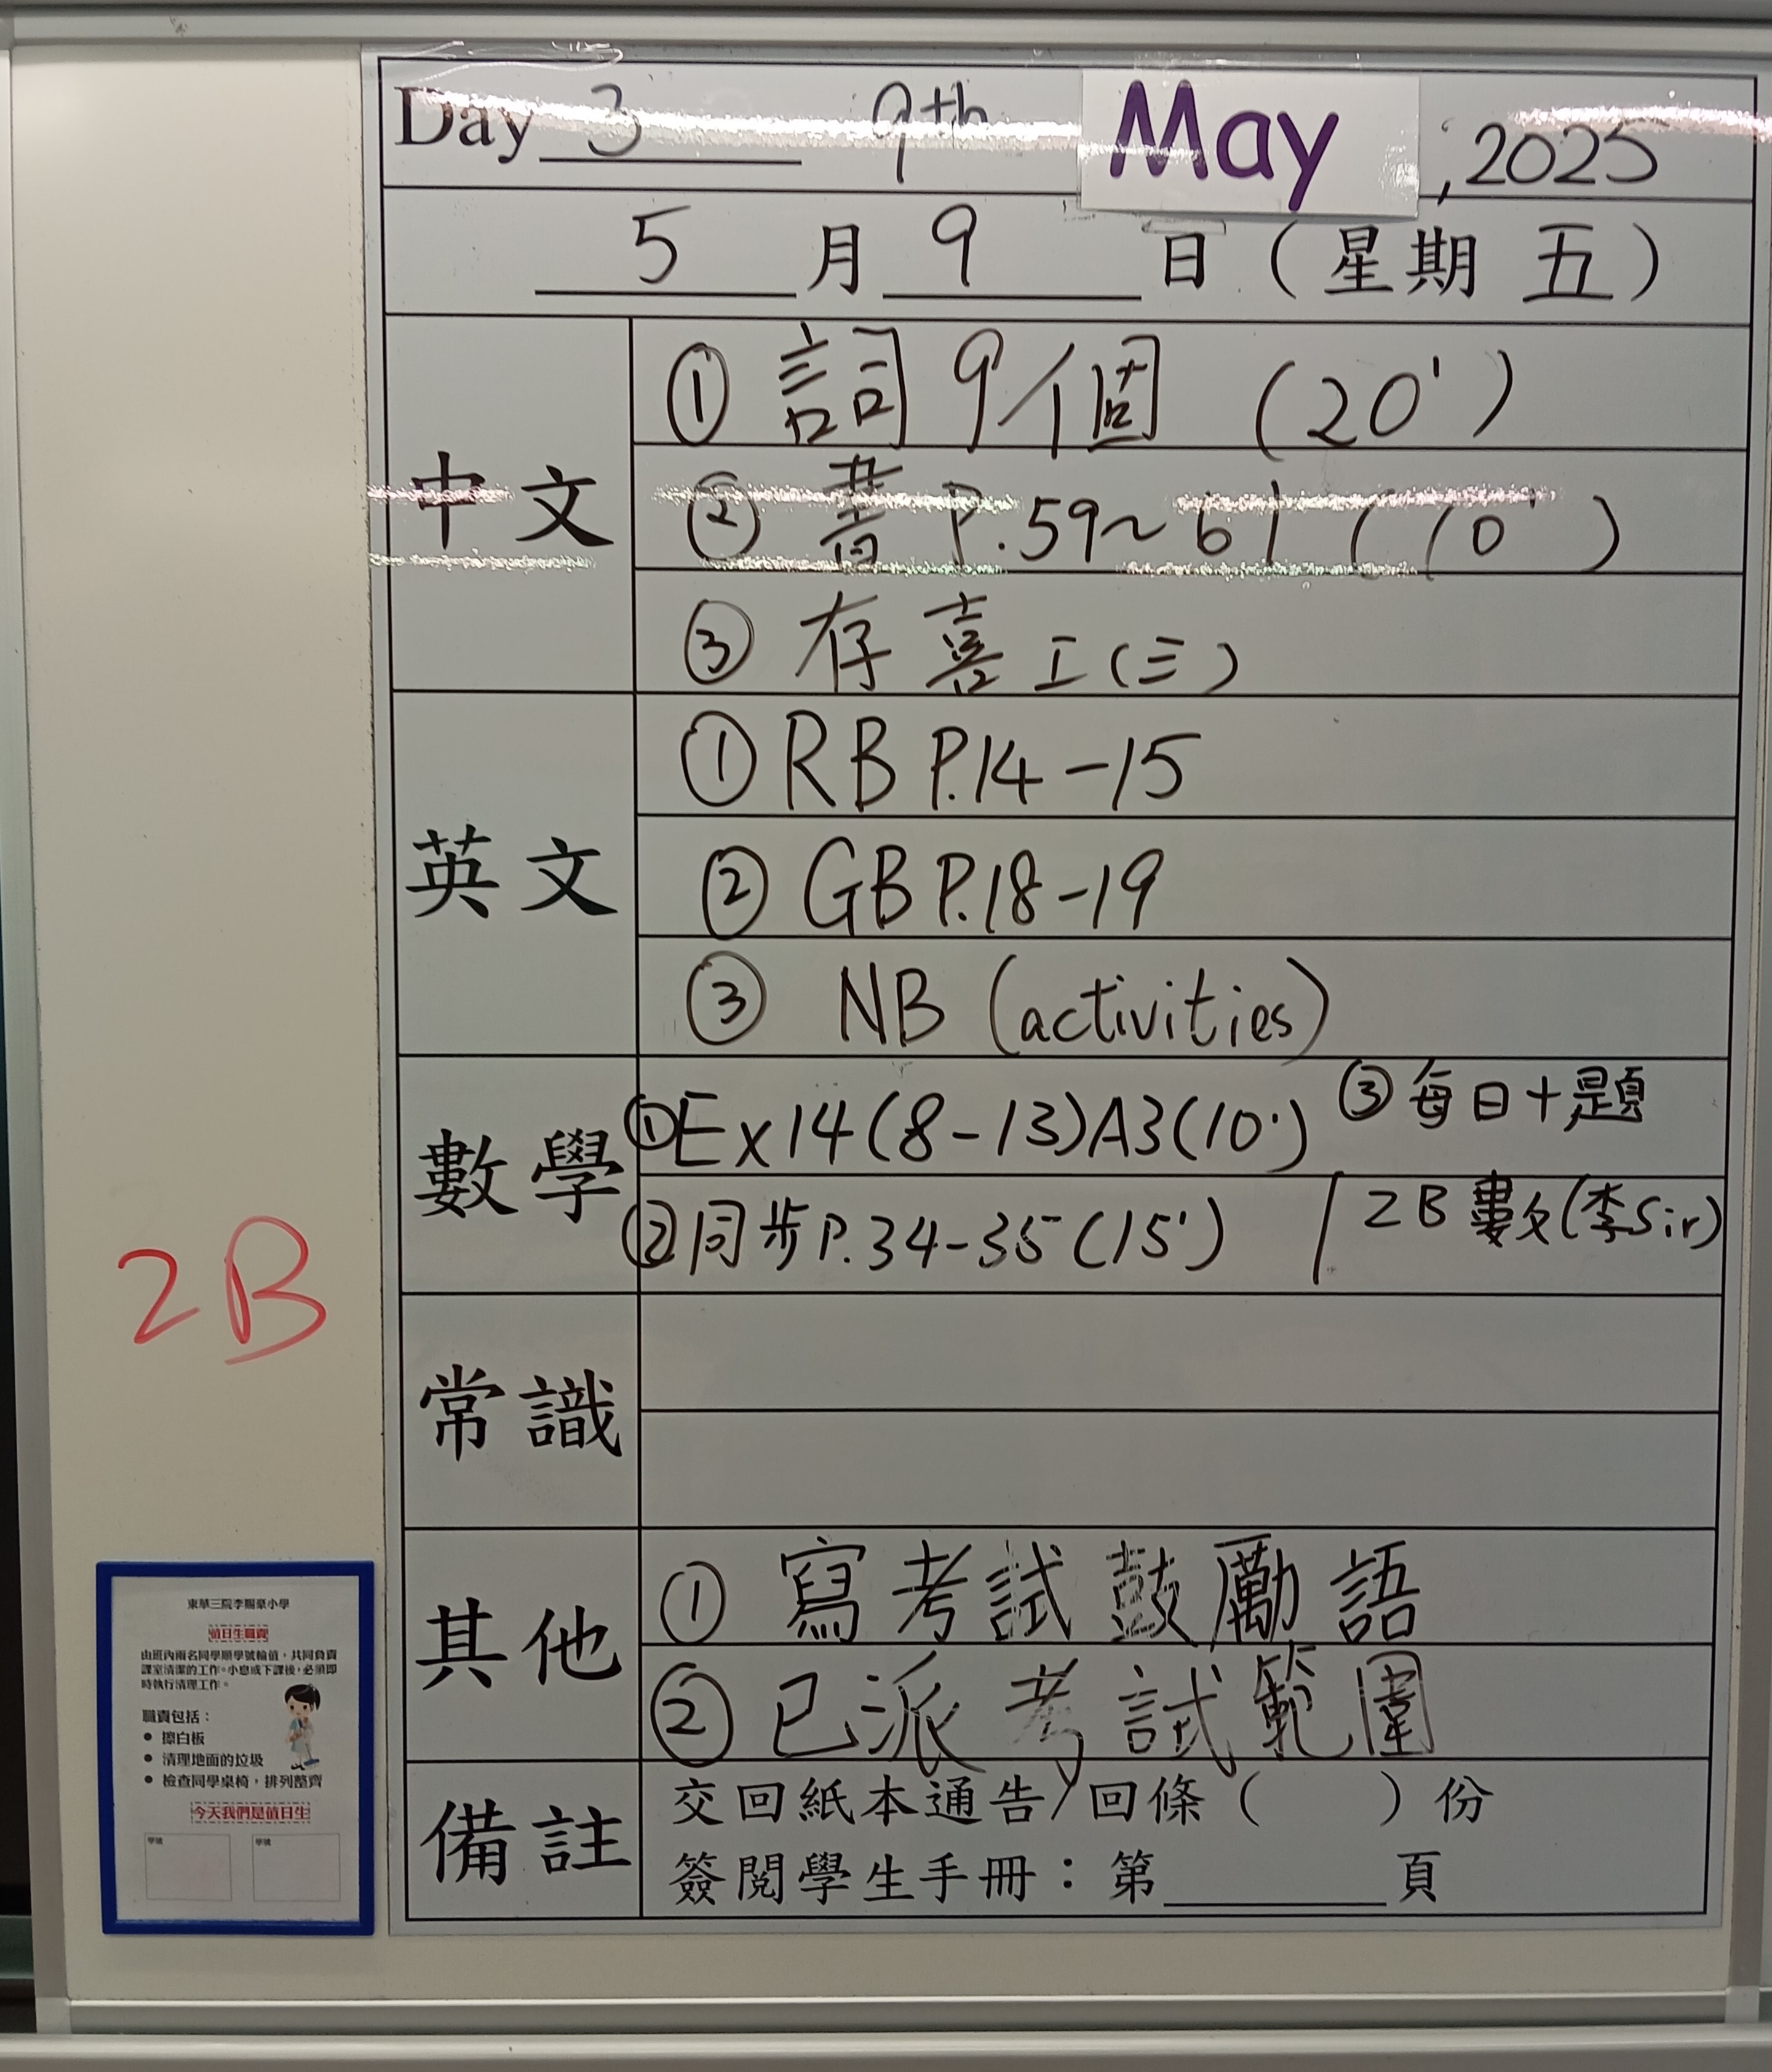 Day 3 9th May , 2025
5 月 9 日 ( 星期 五 )
中文
① 詞 9 個 (20')
② P.59~61 (10')
③ 存喜工(三)
英文
① RB P.14-15
② GB P.18-19
③ NB (activities)
數學
① Ex14(8-13)A3(10')
③ 每日十題
② 同步P.34-35(15')
2B 數(李Sir)
2B
常識
其他
① 寫考試鼓勵語
② 已派考試範圍
備註
交回紙本通告/回條 ( ) 份
簽閱學生手冊：第 頁
東華三院李賜豪小學
值日生職責
由班內兩名同學順學號輪值，共同負責
課室清潔的工作。小息或下課後，必須即
時執行清理工作。
職責包括：
• 擦白板
• 清理地面的垃圾
• 檢查同學桌椅，排列整齊
今天我們是值日生
學號 學號